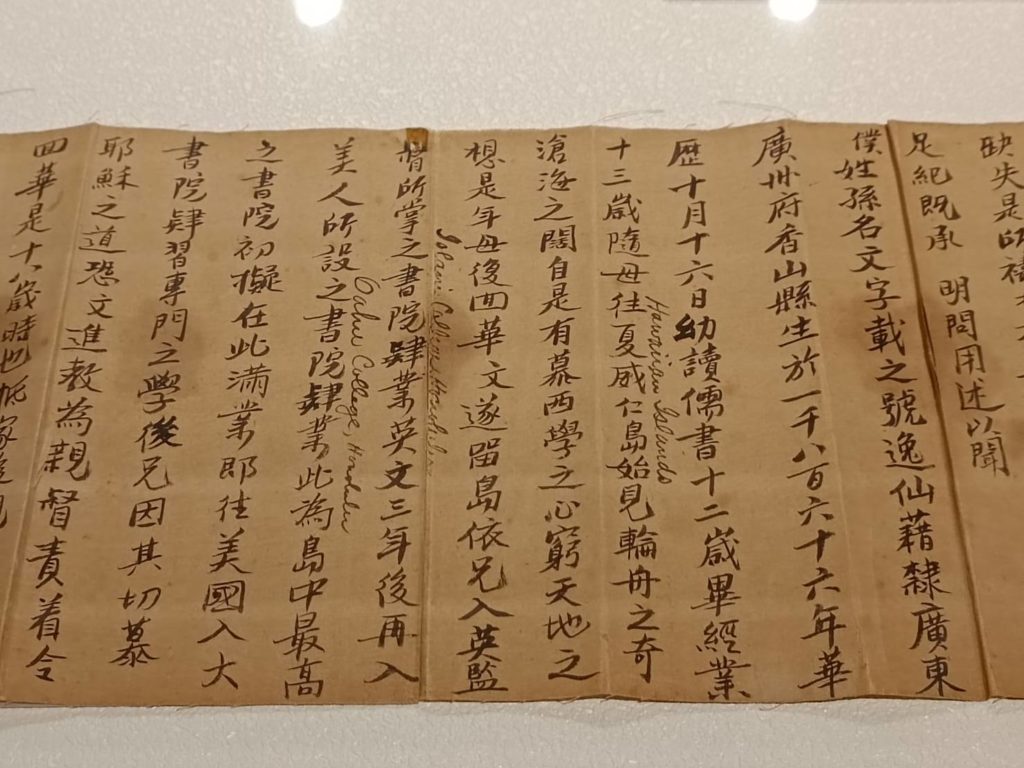 缺失是所
足紀既承 明問用述以聞
僕姓孫名文字載之號逸仙藉隸廣東
廣州府香山縣生於一千八百六十六年華
歷十月十六日幼讀儒書十二歲畢經業
十三歲隨母往夏威仁島始見輪舟之奇
Hawaiian Islands
滄海之闊自是有慕西學之心窮天地之
想是年母後回華文遂留島依兄入英監
Iolani College Honolulu
督所掌之書院肄業英文三年後再入
美人所設之書院肄業此為島中最高
Oahu College, Honolulu
之書院初擬在此滿業即往美國入大
書院肄習專門之學後兄因其切慕
耶穌之道恐文進教為親督責着令
四華是十八歲時也抵家